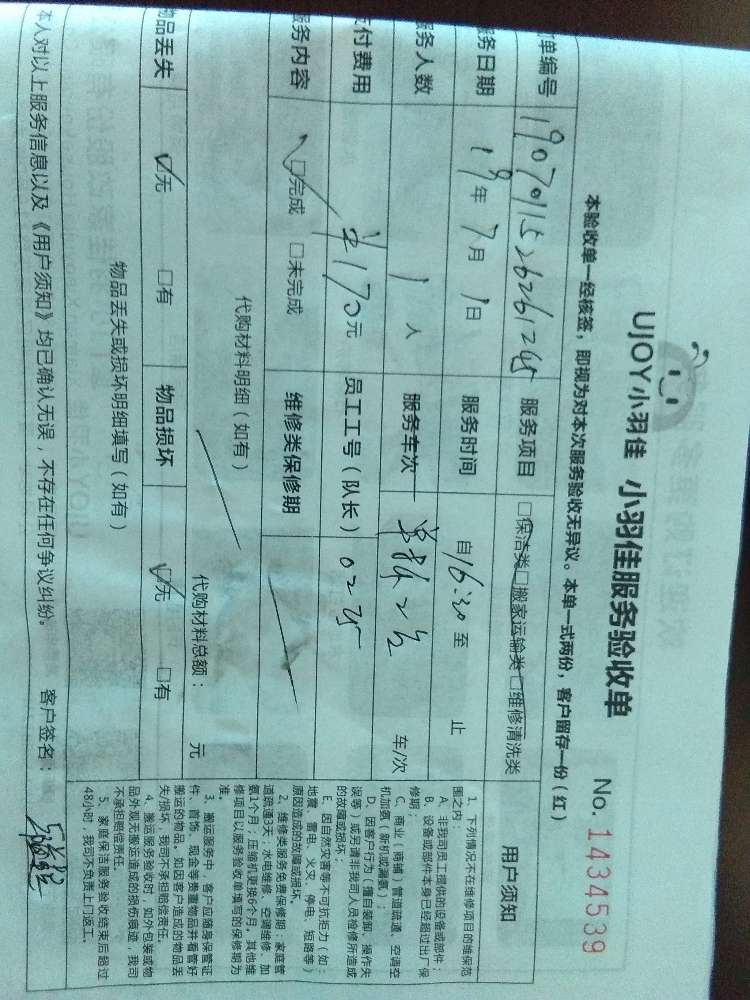 UJOY小羽佳 小羽佳服务验收单
No. 1434539
本验收单一经核签，即视为对本次服务验收无异议。本单一式两份，客户留存一份（红）
单编号
服务项目 □保洁类□搬家运输类□维修清洗类
务日期 19年 7月 1日
服务时间 自16:30至 止
务人数 1 人
服务车次 车/次
付费用 170元
员工工号（队长）
务内容 □完成 □未完成
维修类保修期
代购材料明细（如有）
代购材料总额： 元
物品丢失 □无 □有
物品损坏 □无 □有
物品丢失或损坏明细填写（如有）
本人对以上服务信息以及《用户须知》均已确认无误，不存在任何争议纠纷。 客户签名：
用户须知
1、下列情况不在维修项目的维保范
围之内：
A、非我司员工提供的设备或部件；
B、设备或部件本身已经超过出厂保
修期；
C、商业（商铺）管道疏通、空调空
机加氨（新机或漏氨）；
D、因客户行为（擅自装卸、操作失
误等）或另请非我司人员检修所造成
的故障或损坏；
E、因自然灾害等不可抗拒力（如：
地震、雷电、火灾、停电、短路等）
原因造成的故障或损坏。
2、维修类服务免费保修期：家庭管
道疏通3天；水电维修、空调维修、加
氨1个月；压缩机更换6个月，其他维
修项目以服务验收单填写的保修期为
准。
3、搬运服务中，客户应随身保管证
件、首饰、现金等贵重物品并看管好
搬运的物品。如因客户造成的物品丢
失/损坏，我司不承担赔偿责任。
4、搬运服务验收时，如外包装或物
品外观无搬运造成的损伤痕迹，我司
不承担赔偿责任。
5、家庭保洁服务验收结束后超过
48小时，我司不负责上门返工。